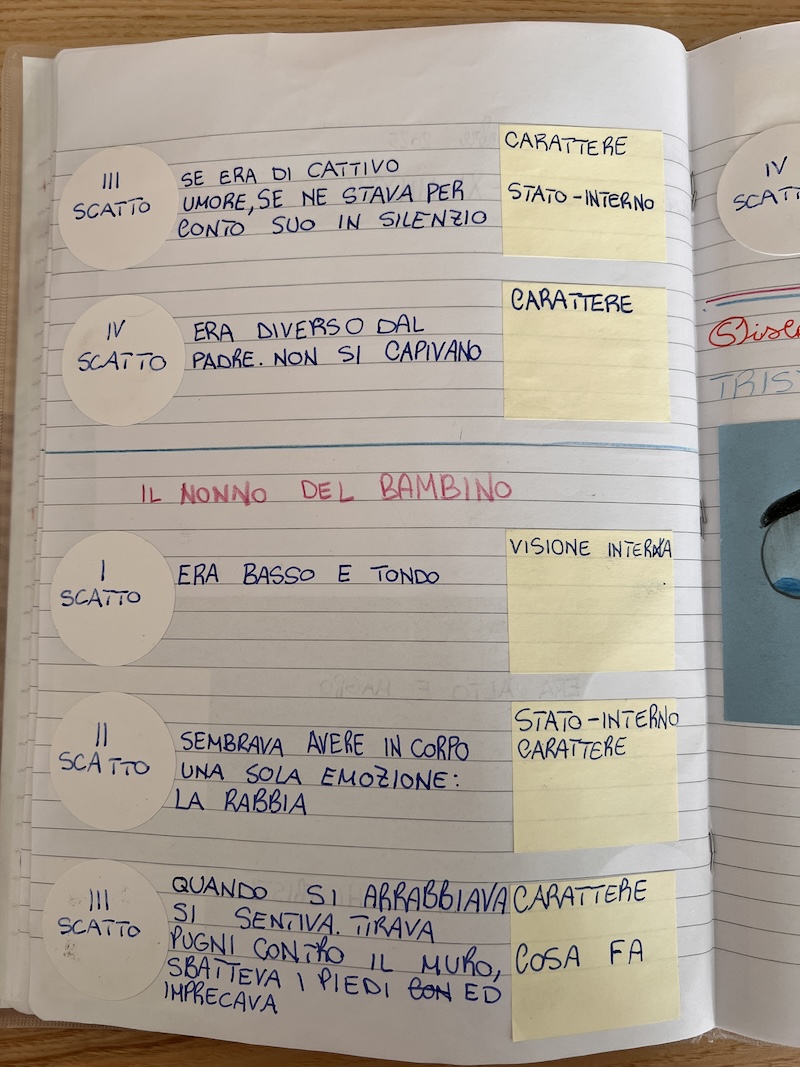 III
SCATTO
SE ERA DI CATTIVO
UMORE, SE NE STAVA PER
CONTO SUO IN SILENZIO
CARATTERE
STATO-INTERNO
IV
SCATTO
ERA DIVERSO DAL
PADRE. NON SI CAPIVANO
CARATTERE
IL NONNO DEL BAMBINO
I
SCATTO
ERA BASSO E TONDO
VISIONE INTERNA
II
SCATTO
SEMBRAVA AVERE IN CORPO
UNA SOLA EMOZIONE:
LA RABBIA
STATO-INTERNO
CARATTERE
III
SCATTO
QUANDO SI ARRABBIAVA
SI SENTIVA. TIRAVA
PUGNI CONTRO IL MURO,
SBATTEVA I PIEDI CON ED
IMPRECAVA
CARATTERE
COSA FA
IV